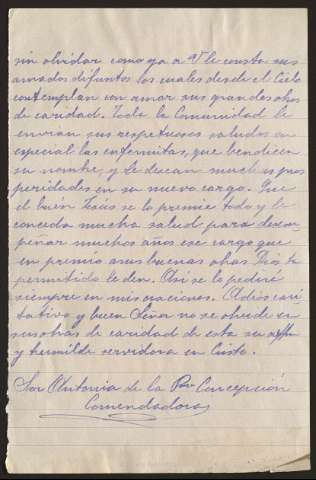 sin olvidar como ya a Vd le consta sus
amados difuntos los cuales desde el Cielo
contemplan con amor sus grandes obras
de caridad. Toda la Comunidad le
envian sus respetuosos saludos en
especial las enfermitas, que bendicen
su nombre, y le desean muchas pros
peridades en su nuevo cargo. Que
el buén Jesús se lo premie todo y le
conceda mucha salud para desem-
peñar muchos años ese cargo que
en premio a sus buenas obras Dios ha
permitido le den. Asi se lo pediré
siempre en mis oraciones. Adiós cari
tativo y buen Señor no se olvide en
sus obras de caridad de esta su
y humilde servidora en Cristo.
Sor Antonia de la Pma Concepción
Comendadora